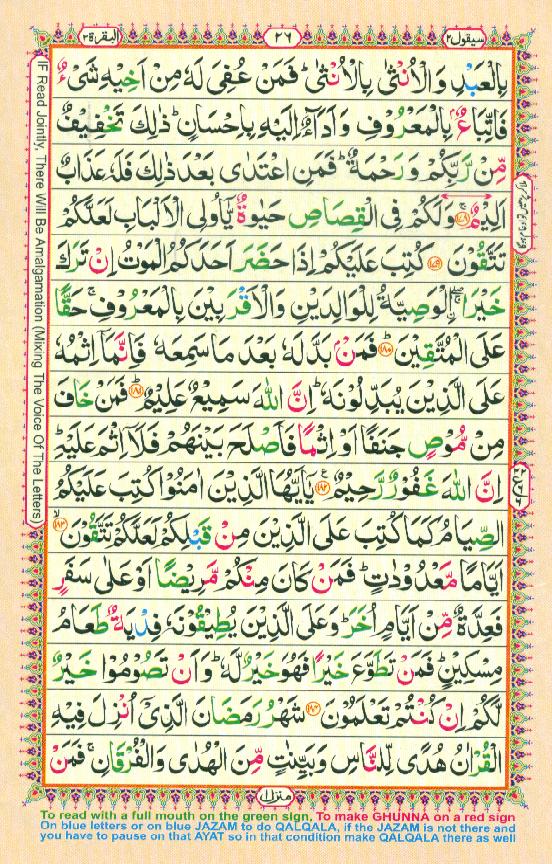 سيقول٢ ٢٦ البقرة٢
بِالْعَبْدِ وَالْاُنْثٰى بِالْاُنْثٰىؕ فَمَنْ عُفِىَ لَهٗ مِنْ اَخِيْهِ شَىْءٌ
فَاتِّبَاعٌۢ بِالْمَعْرُوْفِ وَاَدَآءٌ اِلَيْهِ بِاِحْسَانٍؕ ذٰلِكَ تَخْفِيْفٌ
مِّنْ رَّبِّكُمْ وَرَحْمَةٌؕ فَمَنِ اعْتَدٰى بَعْدَ ذٰلِكَ فَلَهٗ عَذَابٌ
اَلِيْمٌۚ‏﴿۱۷۸﴾ وَلَكُمْ فِى الْقِصَاصِ حَيٰوةٌ يّٰٓاُولِى الْاَلْبَابِ لَعَلَّكُمْ
تَتَّقُوْنَ‏﴿۱۷۹﴾ كُتِبَ عَلَيْكُمْ اِذَا حَضَرَ اَحَدَكُمُ الْمَوْتُ اِنْ تَرَكَ
خَيْرَا ۖۚ اۨلْوَصِيَّةُ لِلْوَالِدَيْنِ وَالْاَقْرَبِيْنَ بِالْمَعْرُوْفِۚ حَقًّا
عَلَى الْمُتَّقِيْنَؕ‏﴿۱۸۰﴾ فَمَنْۢ بَدَّلَهٗ بَعْدَ مَا سَمِعَهٗ فَاِنَّمَآ اِثْمُهٗ
عَلَى الَّذِيْنَ يُبَدِّلُوْنَهٗؕ اِنَّ اللّٰهَ سَمِيْعٌ عَلِيْمٌؕ‏﴿۱۸۱﴾ فَمَنْ خَافَ
مِنْ مُّوْصٍ جَنَفًا اَوْ اِثْمًا فَاَصْلَحَ بَيْنَهُمْ فَلَآ اِثْمَ عَلَيْهِؕ
اِنَّ اللّٰهَ غَفُوْرٌ رَّحِيْمٌ‏﴿۱۸۲﴾ يٰٓاَيُّهَا الَّذِيْنَ اٰمَنُوْا كُتِبَ عَلَيْکُمُ
الصِّيَامُ کَمَا كُتِبَ عَلَى الَّذِيْنَ مِنْ قَبْلِکُمْ لَعَلَّكُمْ تَتَّقُوْنَۙ‏﴿۱۸۳﴾
اَيَّامًا مَّعْدُوْدٰتٍؕ فَمَنْ كَانَ مِنْكُمْ مَّرِيْضًا اَوْ عَلٰى سَفَرٍ
فَعِدَّةٌ مِّنْ اَيَّامٍ اُخَرَؕ وَعَلَى الَّذِيْنَ يُطِيْقُوْنَهٗ فِدْيَةٌ طَعَامُ
مِسْكِيْنٍؕ فَمَنْ تَطَوَّعَ خَيْرًا فَهُوَ خَيْرٌ لَّهٗؕ وَاَنْ تَصُوْمُوْا خَيْرٌ
لَّـکُمْ اِنْ كُنْتُمْ تَعْلَمُوْنَ‏﴿۱۸۴﴾ شَهْرُ رَمَضَانَ الَّذِىْٓ اُنْزِلَ فِيْهِ
الْقُرْاٰنُ هُدًى لِّلنَّاسِ وَ بَيِّنٰتٍ مِّنَ الْهُدٰى وَالْفُرْقَانِۚ فَمَنْ
منزل١
IF Read Jointly, There Will Be Amalgamation (Mixing The Voice Of The Letters)
To read with a full mouth on the green sign, To make GHUNNA on a red sign
On blue letters or on blue JAZAM to do QALQALA, if the JAZAM is not there and
you have to pause on that AYAT so in that condition make QALQALA there as well